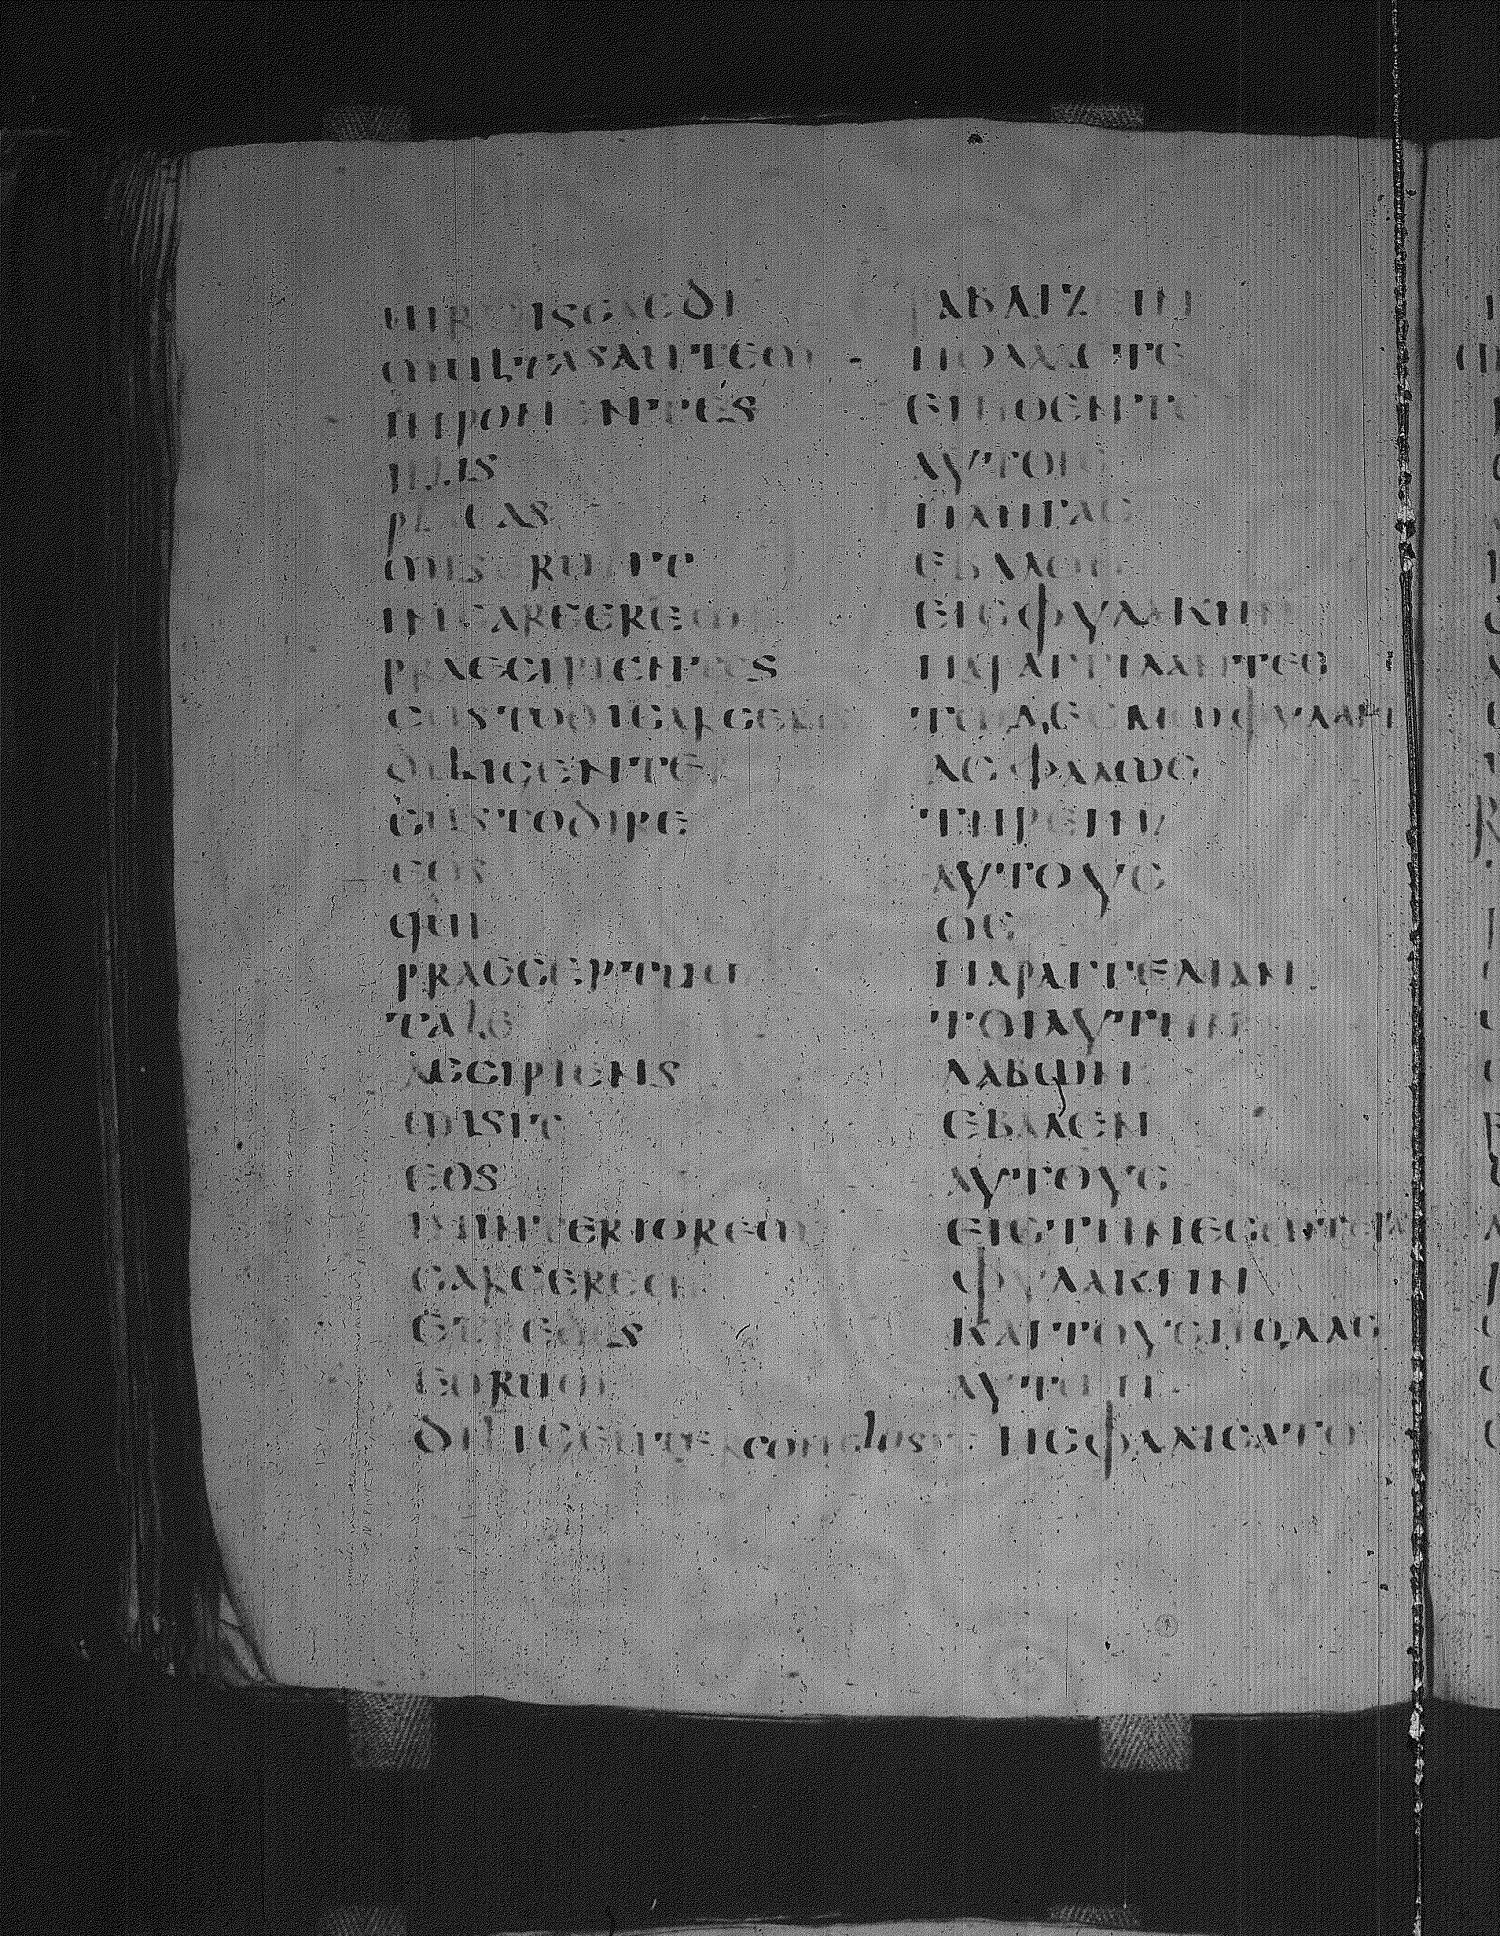 UIRGISCAEDI
MULTASAUTEM
INPONENTES
ILLIS
PLAGAS
MISERUNT
INCARCEREM
PRAECIPIENTES
CUSTODICARCERIS
DILIGENTER
CUSTODIRE
EOS
QUI
PRAECEPTUM
TALE
ACCIPIENS
MISIT
EOS
ININTERIOREM
CARCEREM
ETPEDES
EORUM
DILIGENTERconclusit
ΡΑΒΔΙΖΕΙΝ
ΠΟΛΛΑϹΤΕ
ΕΠΙΘΕΝΤΕϹ
ΑΥΤΟΙϹ
ΠΛΗΓΑϹ
ΕΒΑΛΟΝ
ΕΙϹΦΥΛΑΚΗΝ
ΠΑΡΑΓΓΙΛΑΝΤΕϹ
ΤΩΔΕϹΜΩΦΥΛΑΚΙ
ΑϹΦΑΛΩϹ
ΤΗΡΕΙΝ
ΑΥΤΟΥϹ
ΟϹ
ΠΑΡΑΓΓΕΛΙΑΝ
ΤΟΙΑΥΤΗΝ
ΛΑΒΩΝ
ΕΒΑΛΕΝ
ΑΥΤΟΥϹ
ΕΙϹΤΗΝΕϹΩΤΕΡΑΝ
ΦΥΛΑΚΗΝ
ΚΑΙΤΟΥϹΠΟΔΑϹ
ΑΥΤΩΝ
ΗϹΦΑΛΙϹΑΤΟ